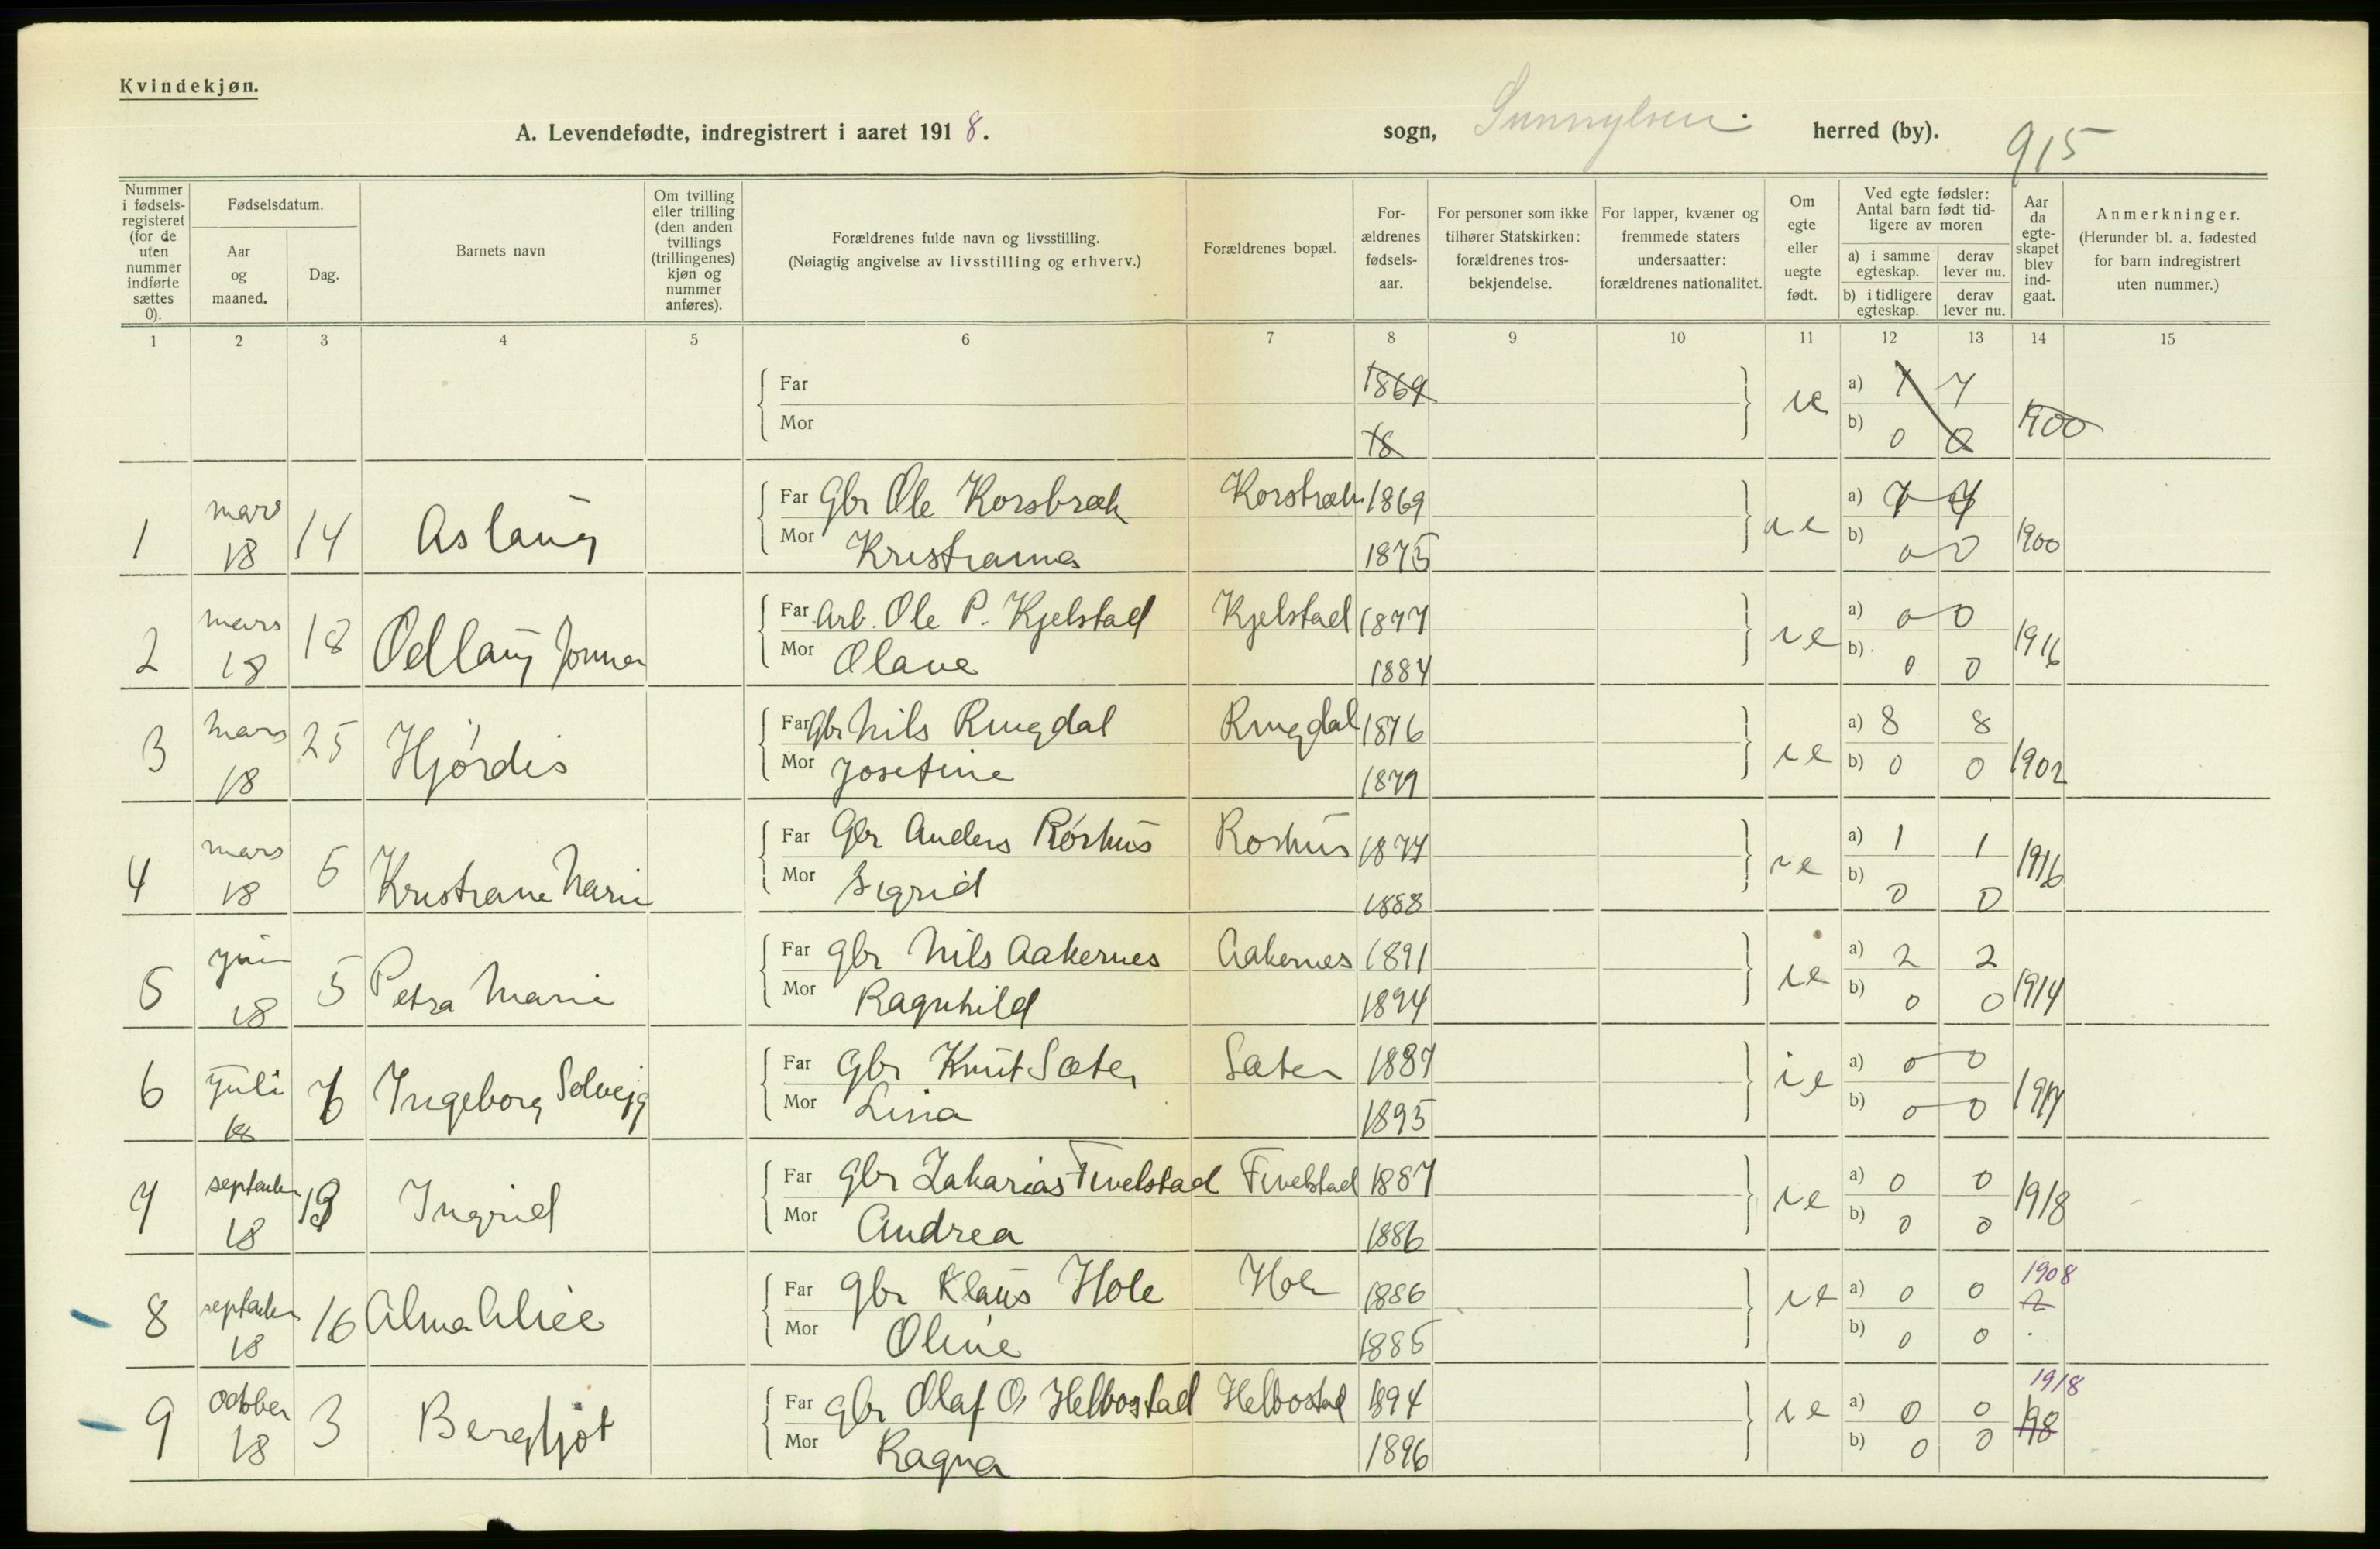 Kvindekjøn.
A. Levendefødte, indregistrert i aaret 1918.
sogn, Sunnylven herred (by).
915
Nummer i fødsels-registeret (for de uten nummer indførte sættes 0).
Fødselsdatum.
Aar og maaned.
Dag.
Barnets navn
Om tvilling eller trilling (den anden tvillings (trillingenes) kjøn og nummer anføres).
Forældrenes fulde navn og livsstilling.
(Nøiagtig angivelse av livsstilling og erhverv.)
Forældrenes bopæl.
For-ældrenes fødsels-aar.
For personer som ikke tilhører Statskirken: forældrenes tros-bekjendelse.
For lapper, kvæner og fremmede staters undersaatter: forældrenes nationalitet.
Om egte eller uegte født.
Ved egte fødsler: Antal barn født tid-ligere av moren
a) i samme egteskap.
derav lever nu.
b) i tidligere egteskap.
derav lever nu.
Aar da egte-skapet blev ind-gaat.
Anmerkninger.
(Herunder bl. a. fødested for barn indregistrert uten nummer.)
1 2 3 4 5 6 7 8 9 10 11 12 13 14 15
Far 1869 ie a) 7 7
Mor 18 b) 0 0 1900
1 mars 18 14 Aslaug Far Gbr Ole Korsbræk Korsbræk 1869 a) 7 7
Mor Kristianna 1875 b) 0 0 1900
2 mars 18 18 Odlaug Jonna Far Arb. Ole P. Kjelstad Kjelstad 1877 ie a) 0 0
Mor Olave 1884 b) 0 0 1916
3 mars 18 25 Hjørdis Far Gbr Nils Ringdal Ringdal 1876 ie a) 8 8
Mor Josefine 1879 b) 0 0 1902
4 mars 18 Kristiane Marie Far Gbr Anders Rørhus Rorhus 1877 ie a) 1 1
Mor Sigrid 1888 b) 0 0 1916
5 juni 18 5 Petra Marie Far gbr Nils Aakernes Aakernes 1891 ie a) 2 2
Mor Ragnhild 1894 b) 0 0 1914
6 juli 18 Ingeborg Solveig Far Gbr Knut Sæter Sæter 1887 ie a) 0 0
Mor Lina 1895 b) 0 0 1917
7 september 18 Ingrid Far gbr Zakarias Fivelstad Fivelstad 1887 ie a) 0 0
Mor Andrea 1886 b) 0 0 1918
8 september 18 16 Alma Alice Far gbr Klaus Hole Hole 1886 ie a) 0 0 1908
Mor Oline 1885 b) 0 0
9 October 18 3 Bergljot Far gbr Olaf O. Helbostad Helbostad 1894 ie a) 0 0 1918
Mor Ragna 1896 b) 0 0 198